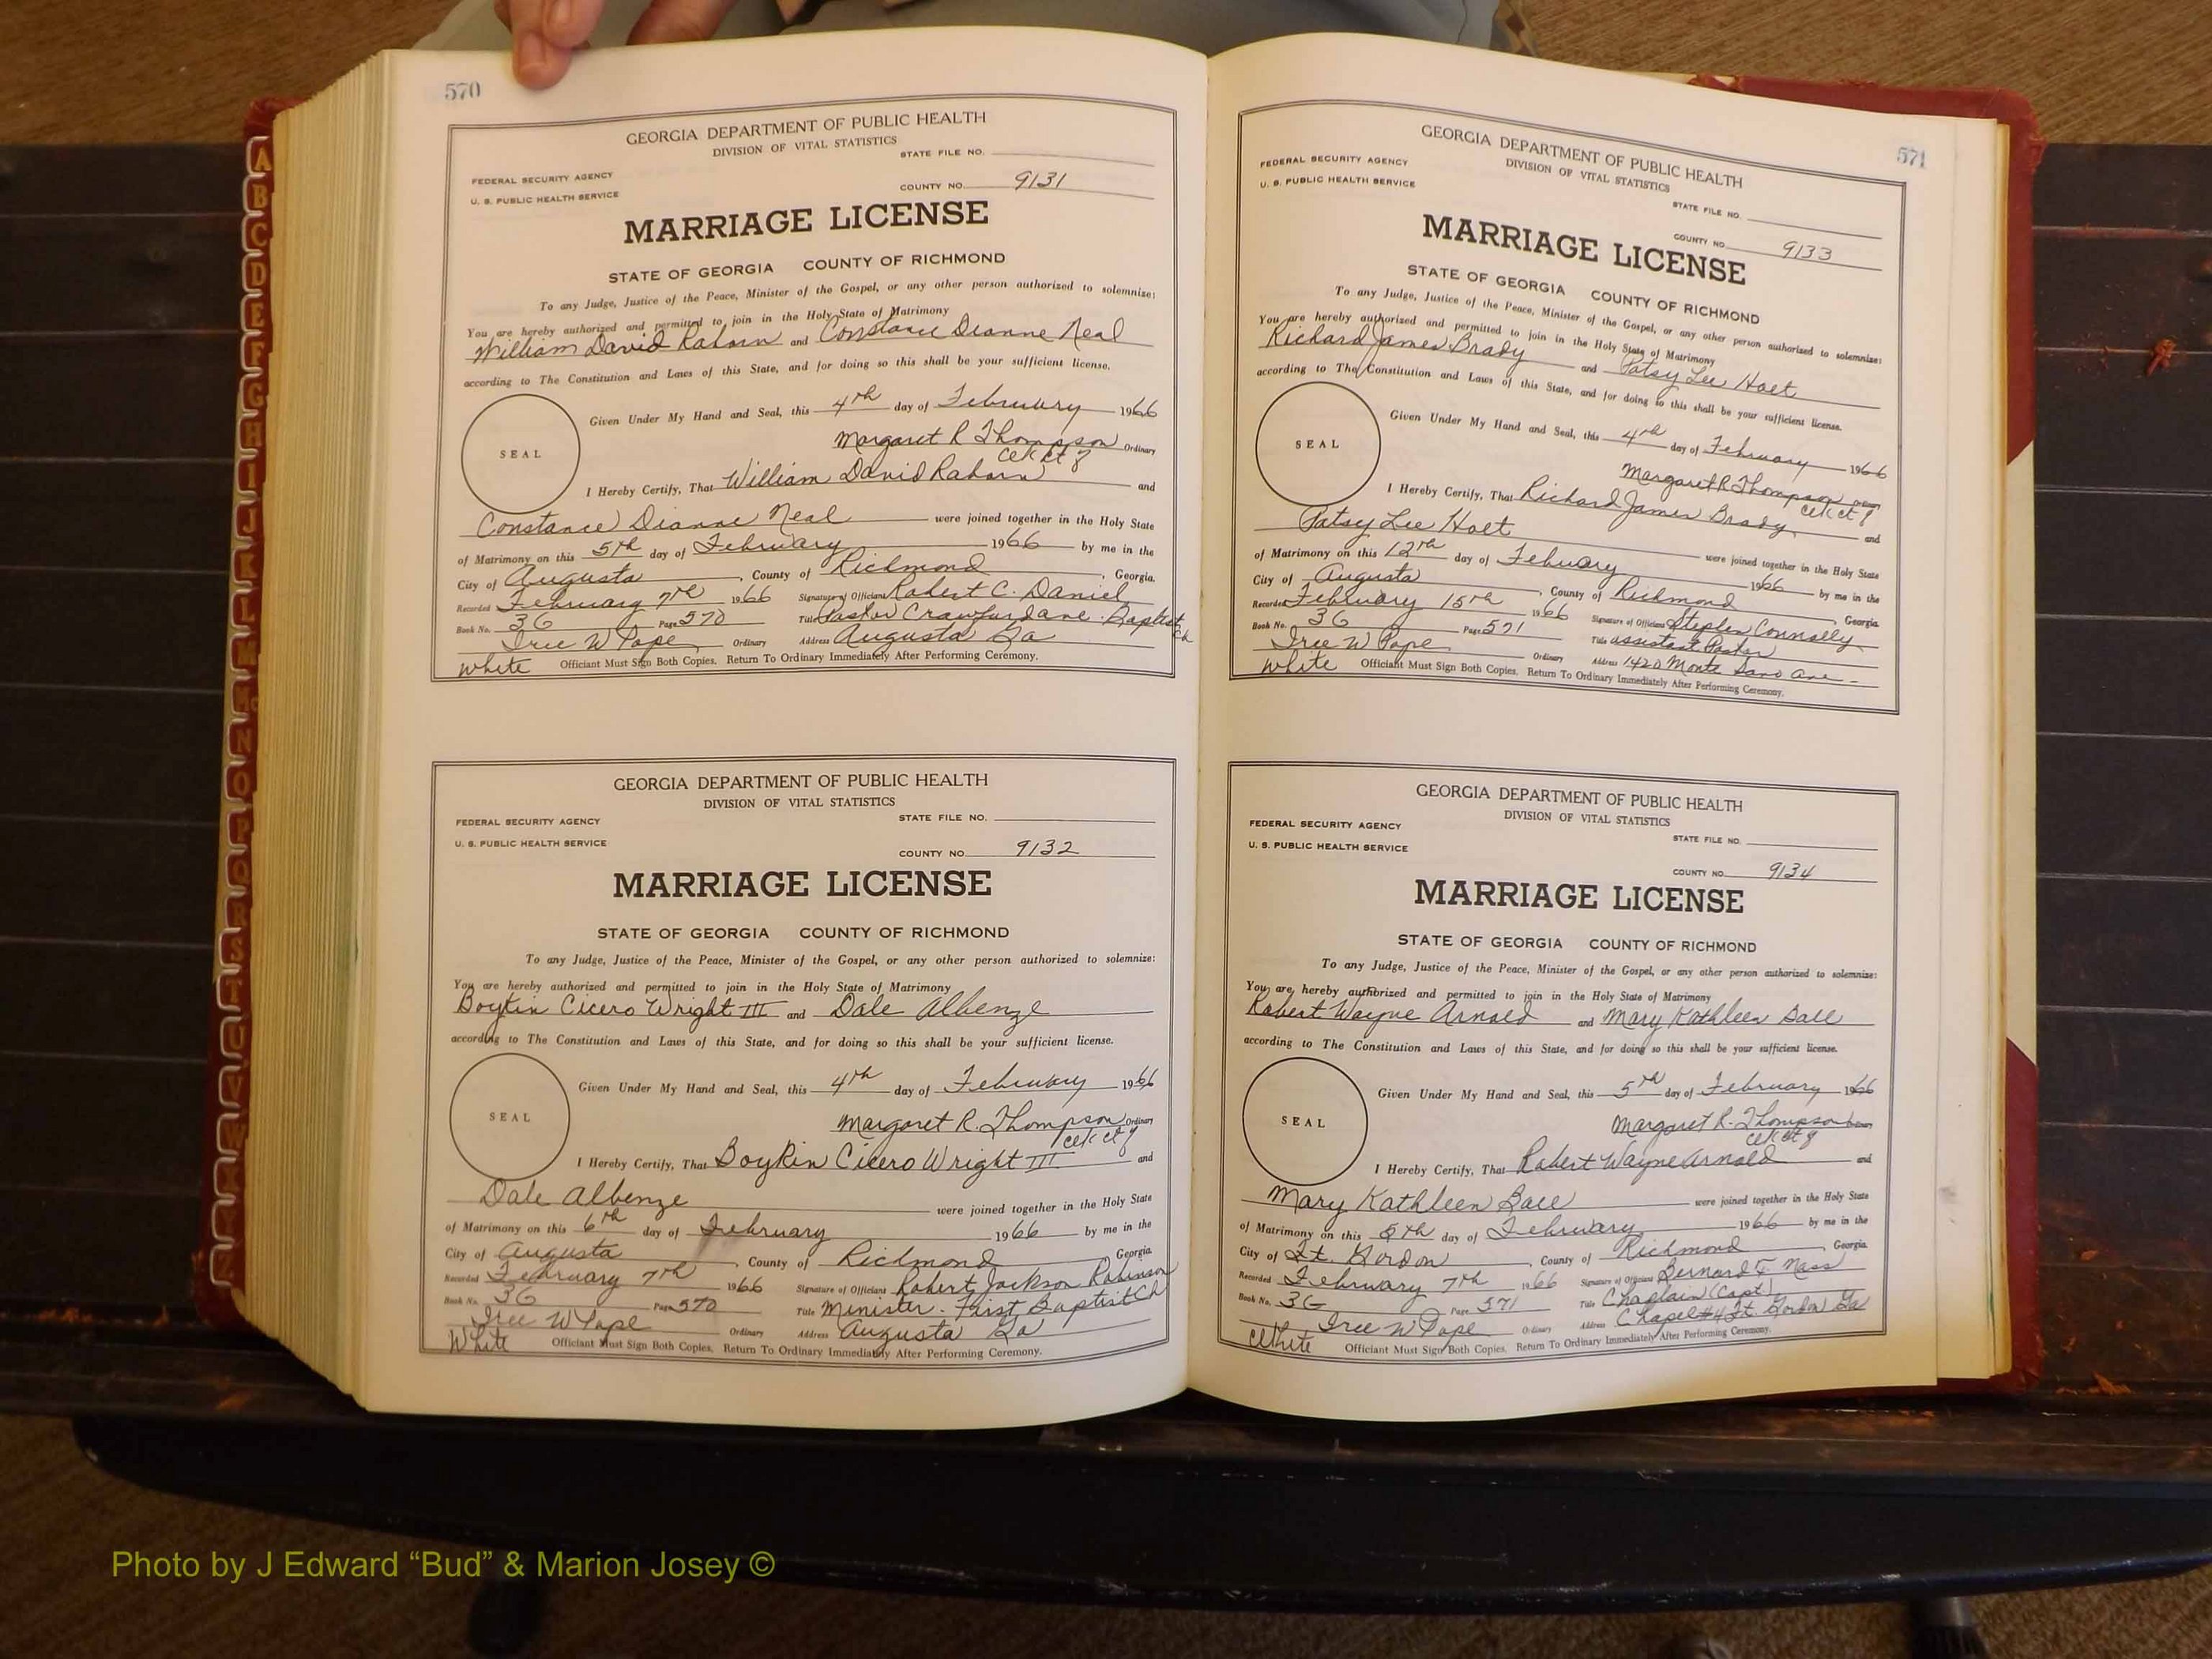 570
GEORGIA DEPARTMENT OF PUBLIC HEALTH
DIVISION OF VITAL STATISTICS
STATE FILE NO.
FEDERAL SECURITY AGENCY
U. S. PUBLIC HEALTH SERVICE
COUNTY NO. 9131
MARRIAGE LICENSE
STATE OF GEORGIA COUNTY OF RICHMOND
To any Judge, Justice of the Peace, Minister of the Gospel, or any other person authorized to solemnize:
You are hereby authorized and permitted to join in the Holy State of Matrimony
William David Rahorn and Constance Dianne Neal
according to The Constitution and Laws of this State, and for doing so this shall be your sufficient license.
Given Under My Hand and Seal, this 4th day of February 1966
Margaret R Thompson Ordinary
SEAL
I Hereby Certify, That William David Rahorn and
Constance Dianne Neal were joined together in the Holy State
of Matrimony on this 5th day of February 1966 by me in the
City of Augusta, County of Richmond, Georgia.
Recorded February 7th 1966 Signature of Officiant Robert C. Daniel
Book No. 3G Page 570 Title Pastor Baptist Ch
Ordinary Address Augusta Ga
White Officiant Must Sign Both Copies. Return To Ordinary Immediately After Performing Ceremony.
GEORGIA DEPARTMENT OF PUBLIC HEALTH
DIVISION OF VITAL STATISTICS
STATE FILE NO.
FEDERAL SECURITY AGENCY
U. S. PUBLIC HEALTH SERVICE
COUNTY NO. 9132
MARRIAGE LICENSE
STATE OF GEORGIA COUNTY OF RICHMOND
To any Judge, Justice of the Peace, Minister of the Gospel, or any other person authorized to solemnize:
You are hereby authorized and permitted to join in the Holy State of Matrimony
Boykin Cicero Wright III and Dale Albenze
according to The Constitution and Laws of this State, and for doing so this shall be your sufficient license.
Given Under My Hand and Seal, this 4th day of February 1966
Margaret R. Thompson Ordinary
SEAL
I Hereby Certify, That Boykin Cicero Wright III and
Dale Albenze were joined together in the Holy State
of Matrimony on this 6th day of February 1966 by me in the
City of Augusta, County of Richmond, Georgia
Recorded February 7th 1966 Signature of Officiant Robert Jackson Robinson
Book No. 3G Page 570 Title Minister - First Baptist Ch
Ordinary Address Augusta Ga
White Officiant Must Sign Both Copies. Return To Ordinary Immediately After Performing Ceremony.
571
GEORGIA DEPARTMENT OF PUBLIC HEALTH
DIVISION OF VITAL STATISTICS
FEDERAL SECURITY AGENCY
U. S. PUBLIC HEALTH SERVICE
STATE FILE NO.
COUNTY NO. 9133
MARRIAGE LICENSE
STATE OF GEORGIA COUNTY OF RICHMOND
To any Judge, Justice of the Peace, Minister of the Gospel, or any other person authorized to solemnize:
You are hereby authorized and permitted to join in the Holy State of Matrimony
Richard James Brady and Patsy Lee Holt
according to The Constitution and Laws of this State, and for doing so this shall be your sufficient license.
Given Under My Hand and Seal, this 4th day of February 1966
Margaret R Thompson
SEAL
I Hereby Certify, That Richard James Brady and
Patsy Lee Holt were joined together in the Holy State
of Matrimony on this 12th day of February 1966 by me in the
City of Augusta, County of Richmond, Georgia
Recorded February 15th 1966 Signature of Officiant Stephen Connolly
Book No. 3G Page 571 Title assistant Pastor
Ordinary Address 1420 Monte Sano Ave -
White Officiant Must Sign Both Copies. Return To Ordinary Immediately After Performing Ceremony.
GEORGIA DEPARTMENT OF PUBLIC HEALTH
DIVISION OF VITAL STATISTICS
FEDERAL SECURITY AGENCY
U. S. PUBLIC HEALTH SERVICE
STATE FILE NO.
COUNTY NO. 9134
MARRIAGE LICENSE
STATE OF GEORGIA COUNTY OF RICHMOND
To any Judge, Justice of the Peace, Minister of the Gospel, or any other person authorized to solemnize:
You are hereby authorized and permitted to join in the Holy State of Matrimony
Robert Wayne Arnold and Mary Kathleen Ball
according to The Constitution and Laws of this State, and for doing so this shall be your sufficient license.
Given Under My Hand and Seal, this 5th day of February 1966
Margaret R. Thompson
SEAL
I Hereby Certify, That Robert Wayne Arnold and
Mary Kathleen Ball were joined together in the Holy State
of Matrimony on this 5th day of February 1966 by me in the
City of Ft. Gordon, County of Richmond, Georgia
Recorded February 7th 1966 Signature of Officiant Bernard
Book No. 3G Page 571 Title Chaplain (Capt)
Ordinary Address Chapel #4 Ft. Gordon Ga
White Officiant Must Sign Both Copies. Return To Ordinary Immediately After Performing Ceremony.
A
B
C
D
E
F
G
H
I
J
K
L
M
Mc
N
O
P
Q
R
S
T
U
V
W
X
Y
Z
Photo by J Edward “Bud” & Marion Josey ©